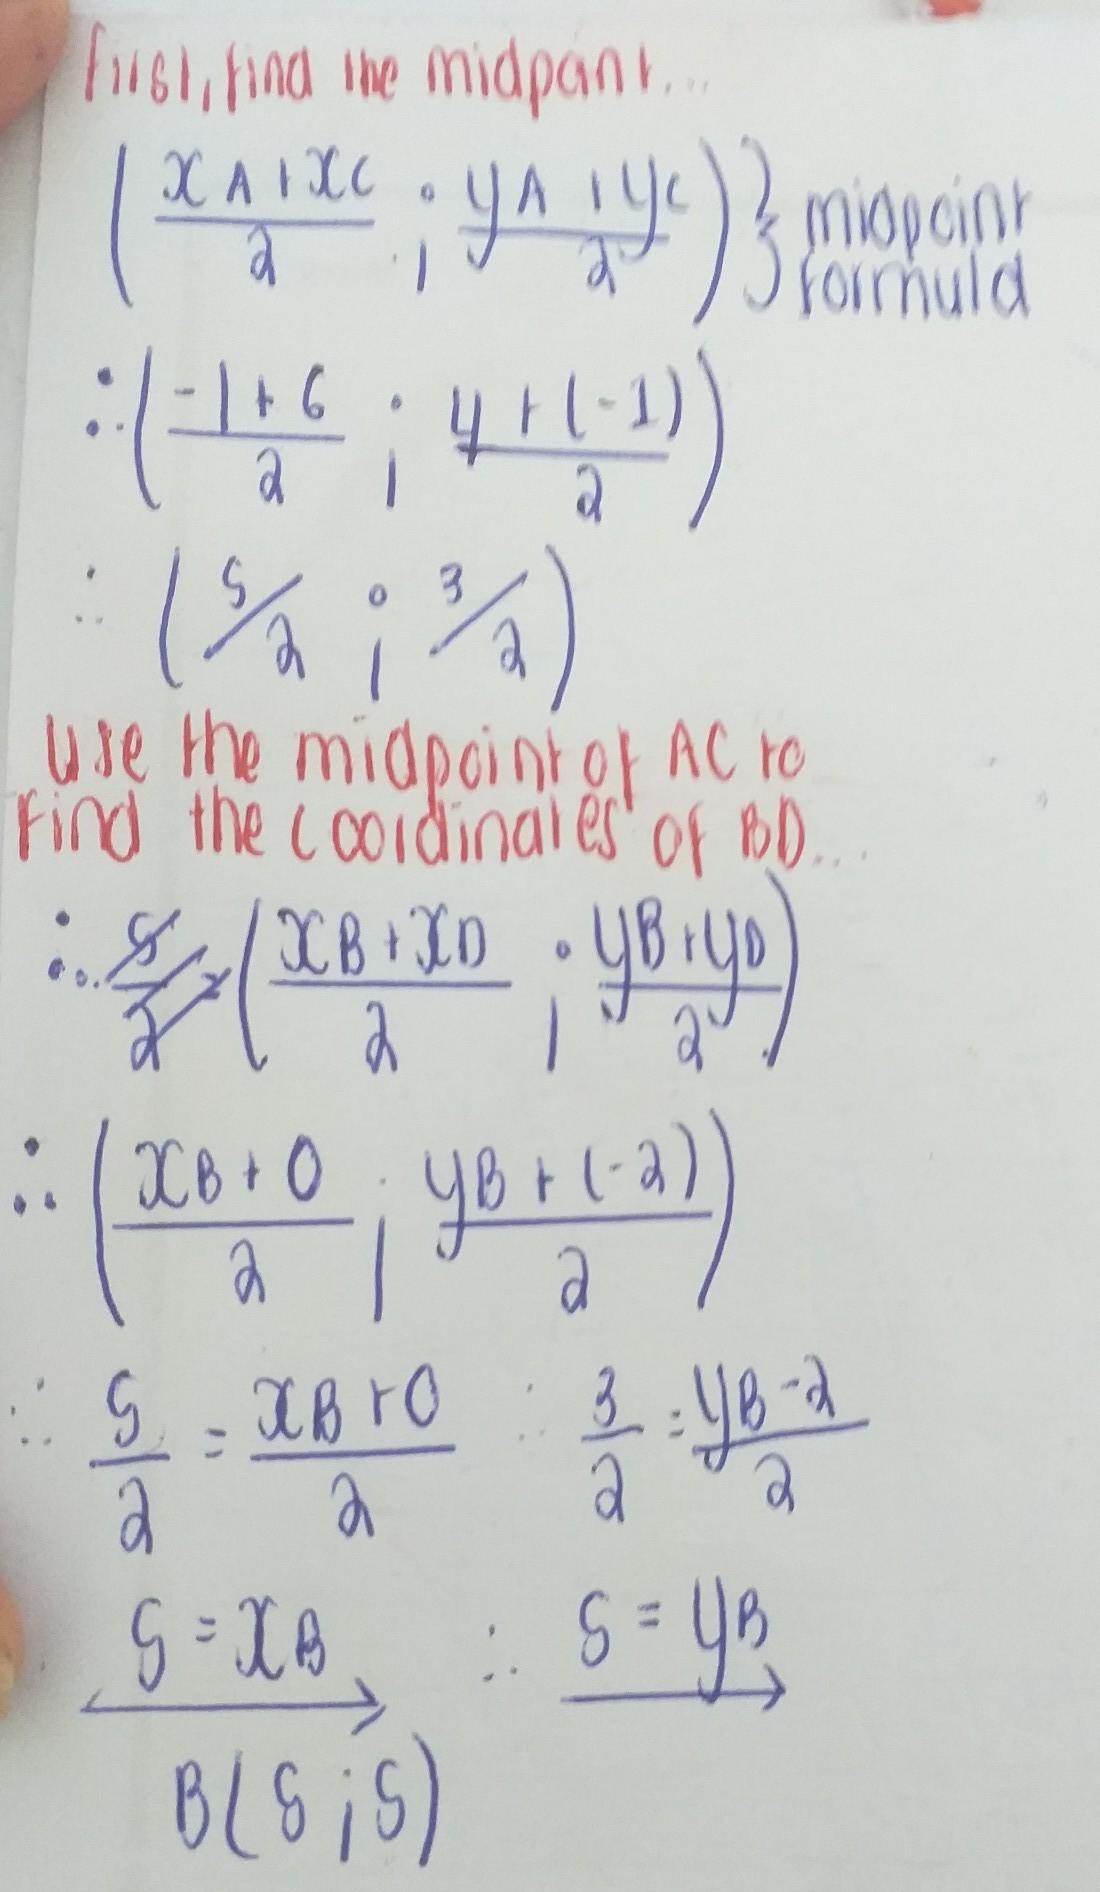 First, find the midpoint...
(xA + xC / 2 ; yA + yC / 2) } midpoint formula
∴ (-1 + 6 / 2 ; 4 + (-1) / 2)
∴ (5/2 ; 3/2)
Use the midpoint of AC to
find the coordinates of BD...
∴ (xB + xD / 2 ; yB + yD / 2)
∴ (xB + 0 / 2 ; yB + (-2) / 2)
∴ 5/2 = xB + 0 / 2 ∴ 3/2 = yB - 2 / 2
5 = xB ∴ 5 = yB
B(5 ; 5)